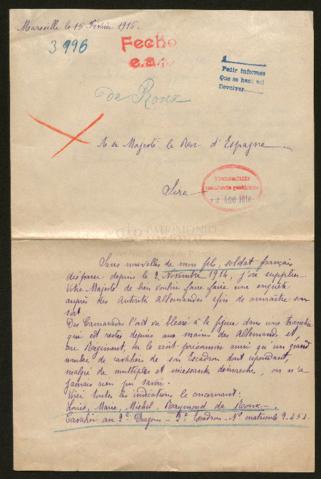 Marseille le 15 Février 1915.
3996
Fecho
Pedir informes
Que se haga
Devolver
de Roux
A Sa Majesté le Roi d'Espagne
Sire
Sans nouvelles de mon fils, soldat français
disparu depuis le 2 Novembre 1914, j'ose supplier
Votre Majesté de bien vouloir faire faire une enquête
auprès des Autorités Allemandes afin de connaître son
sort
Des Camarades l'ont vu blessé à la figure dans une tranchée
qui est restée depuis aux mains des Allemands et
au Régiment, on le croit prisonnier ainsi qu'un grand
nombre de cavaliers de son Escadron dont cependant,
malgré de multiples et incessantes démarches, on n'a
jamais rien pu savoir.
Voici toutes les indications le concernant:
Louis, Marie, Michel, Raymond de Roux,
Cavalier au 2e Dragons - 3e Escadron - No matricule